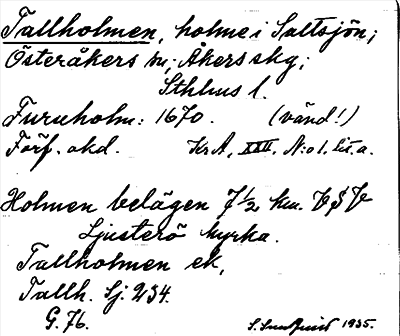 Tallholmen, holme i Saltsjön;
Österåkers sn; Åkers skg;
Sthlms l.
Furuholm: 1670. (vänd!)
Förf. akd. KrA, XXIV. N:o 1. lit. a.
Holmen belägen 7 1/2 km. V$V
Ljusterö kyrka.
Tallholmen ek,
Tallh. Sj. 234.
G. 76.
S. Sundquist 1935.